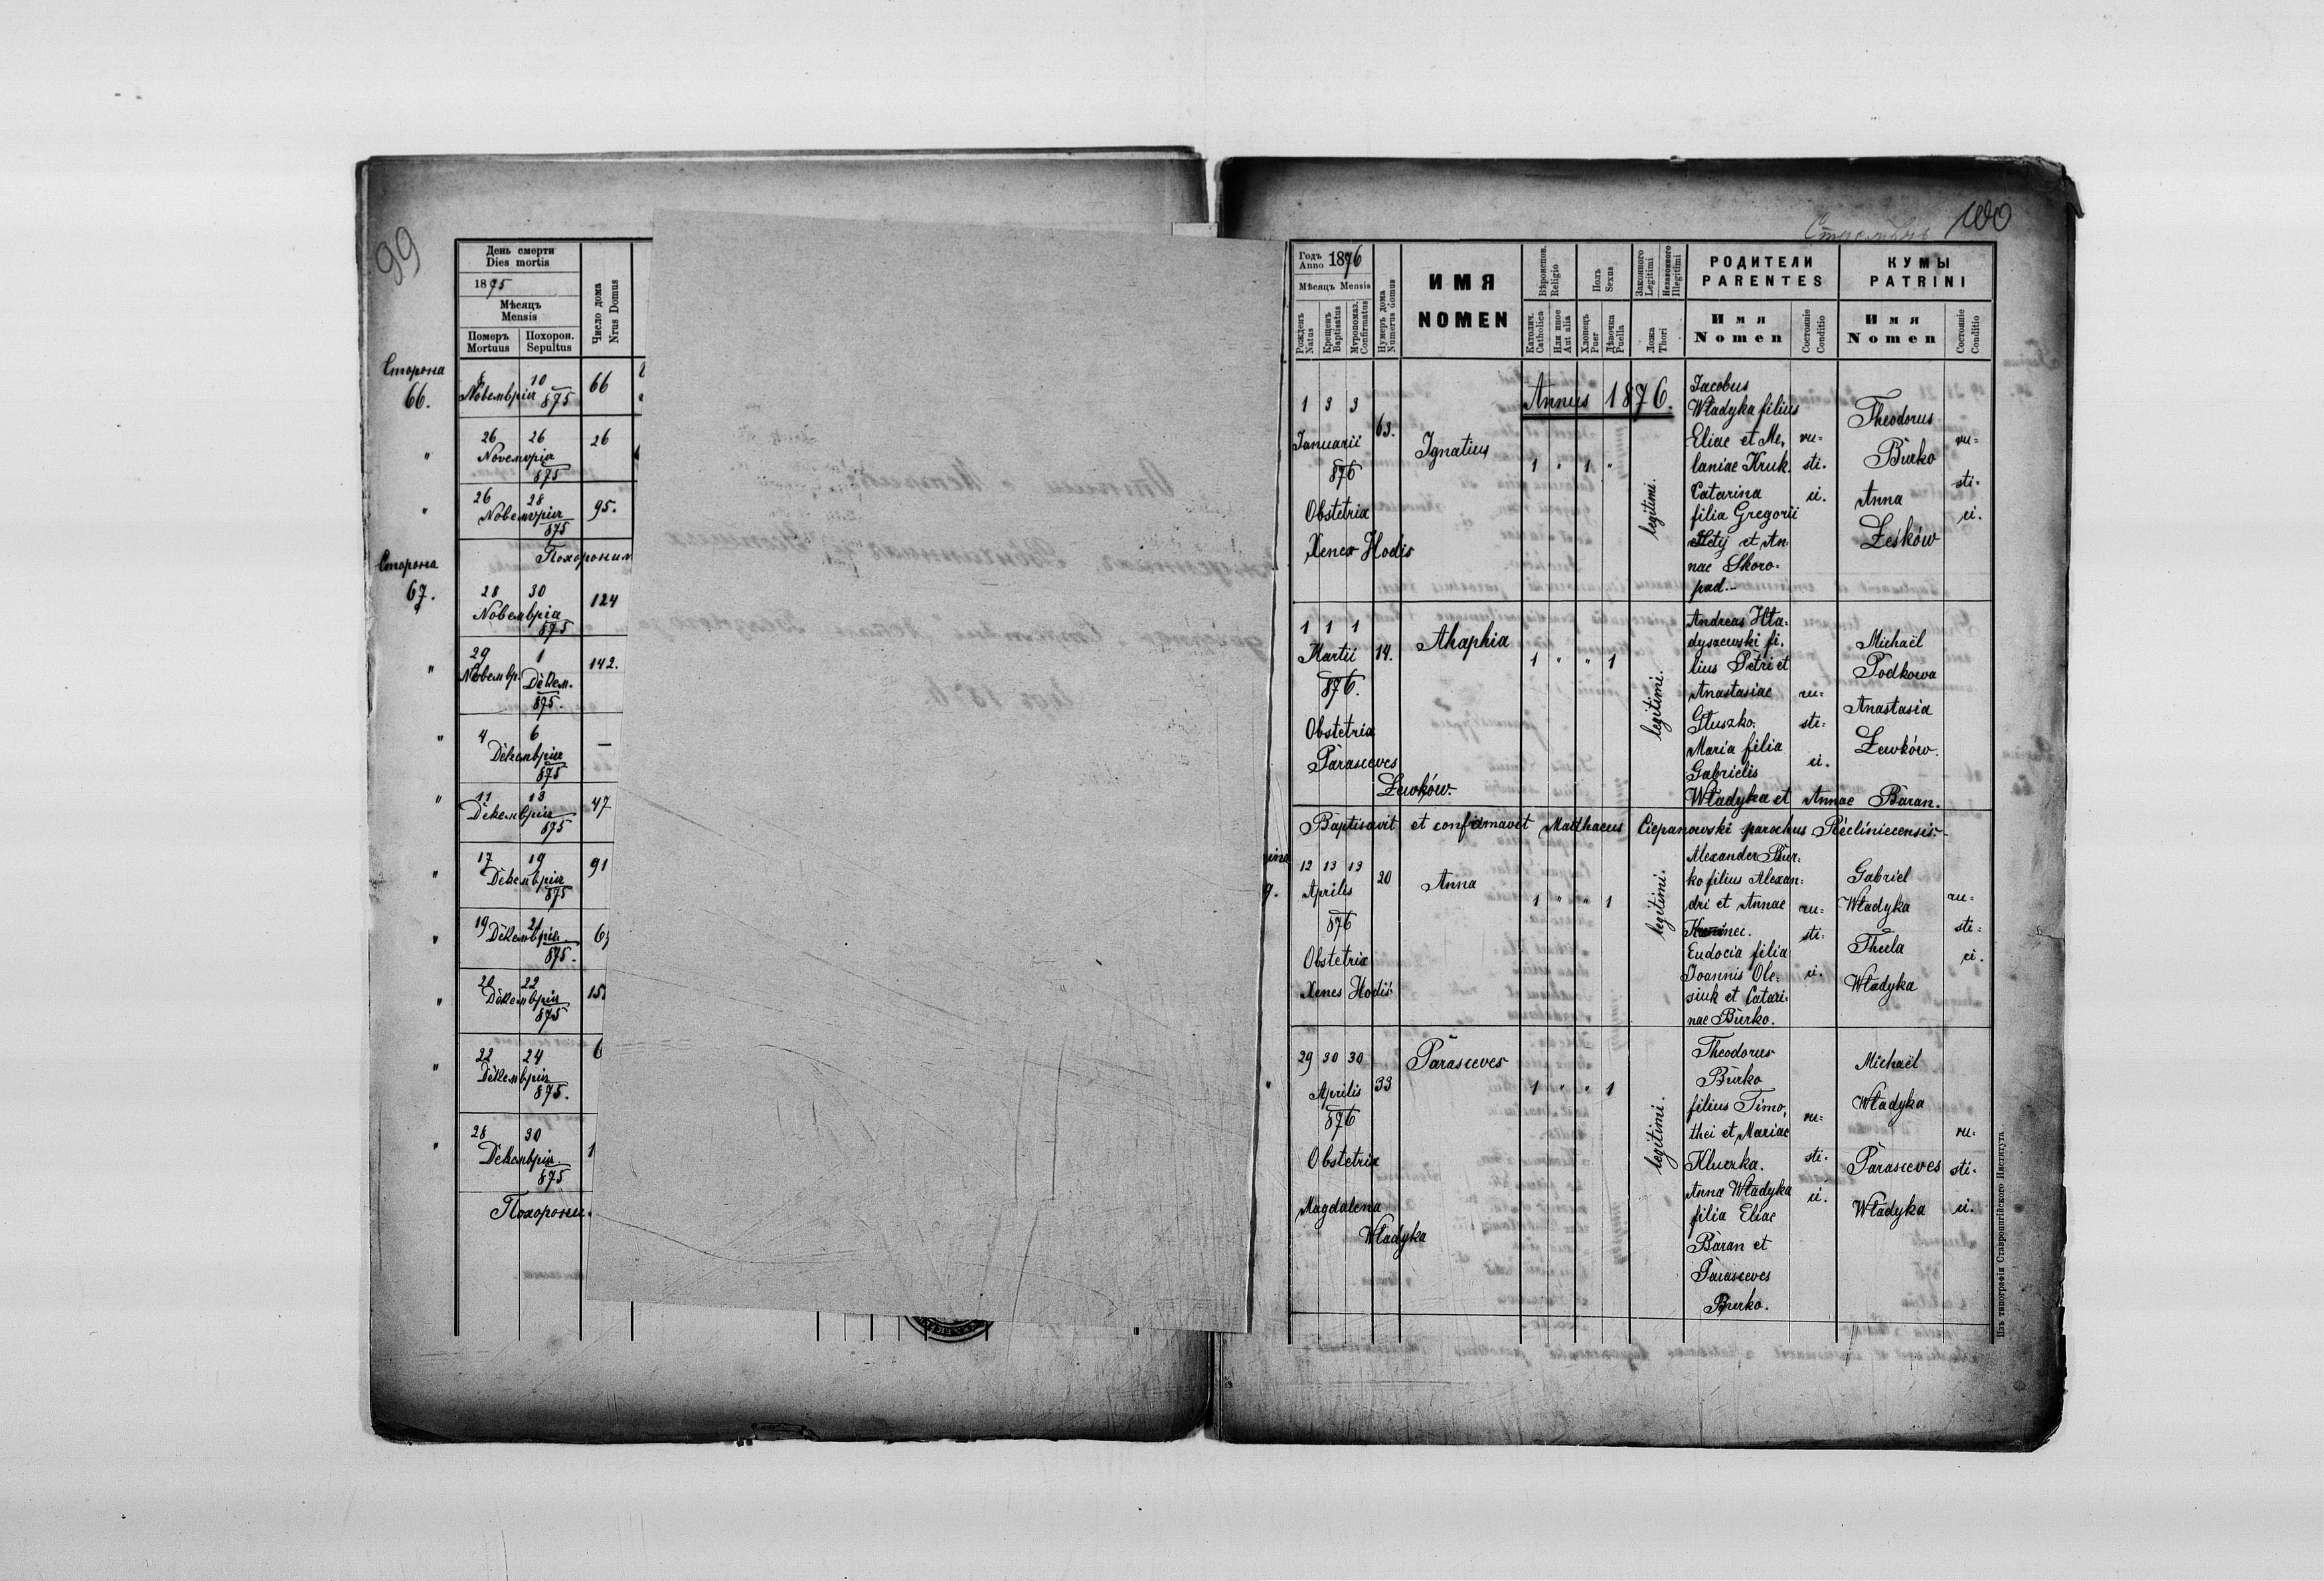 99
День смерти
Dies mortis
1875
Мѣсяцъ
Mensis
Померъ
Mortuus
Похорон.
Sepultus
Число дома
Nrus Domus
Сторона
66.
8 10
Новемврія 875
66
" 26 26
Новемврія
875
26
" 26 28
Новемврія
875
95.
Похоронил
Сторона
67.
28 30
Новемврія
875
124
" 29 1
Новемвр. Декем.
875.
142.
" 4 6
Декемврія
875
—
" 11 13
Декемврія
875
47
" 17 19
Декемврія
875
91
" 19 21
Декемврія
875.
" 20 22
Декемврія
875
15
" 22 24
Декемврія
875.
6
" 28 30
Декемврія
875
1
Похорони
100
Годъ
Anno 1876
Мѣсяцъ Mensis
Рожденъ
Natus
Крещенъ
Baptisatus
Мѵропомаз.
Confirmatus
Нумеръ дома
Numerus domus
ИМЯ
NOMEN
Вѣроиспов.
Religio
Католич.
Catholica
Или иное
Aut alia
Полъ
Sexus
Хлопецъ
Puer
Дѣвочка
Puella
Законного
Legitimi
Незаконного
Illegitimi
Ложа
Thori
РОДИТЕЛИ
PARENTES
Имя
Nomen
Состояніе
Conditio
КУМЫ
PATRINI
Имя
Nomen
Состояніе
Conditio
Annus 1876.
1 3 3
Januarii
876
Obstetrix
Xenes Hodis
63.
Ignatius
1 " 1 "
legitimi.
Jacobus
Władyka filius
Eliae et Me-
laniae Kruk.
Catarina
filia Gregorii
et An-
nae Skoro-
pad.-
ru-
sti-
ci.
Theodorus
Burko
Anna
Leśków
ru-
sti-
ci.
1 1 1
Martii
876.
Obstetrix
Parasceves
Lewków
14.
Ahaphia
1 " " 1
legitimi.
Andreas Hła-
dyszewski fi-
lius Petri et
Anastasiae
Głuszko.
Maria filia
Gabrielis
Władyka et Annae Baran.
ru-
sti-
ci.
Michaël
Podkowa
Anastasia
Lewków.
Baptisavit et confirmavit Matthaeus Ciepanowski parochus Recliniecensis.-
12 13 13
Aprilis
876
Obstetrix
Xenes Hodis
20
Anna
1 " " 1
legitimi.
Alexander Bur-
ko filius Alexan-
dri et Annae
Eudocia filia
Joannis Ole-
siuk et Catari-
nae Burko.
ru-
sti-
ci.
Gabriel
Władyka
Thecla
Władyka
ru-
sti-
ci.
29 30 30
Aprilis
876
Obstetrix
Magdalena
Władyka
33
Parasceves
1 " " 1
legitimi.
Theodorus
Burko
filius Timo-
thei et Mariae
Kluczka.
Anna Władyka
filia Eliae
Baran et
Parasceves
Burko.
ru-
sti-
ci.
Michaël
Władyka
Parasceves
Władyka
ru-
sti-
ci.
Изъ типографіи Ставропигійского Института